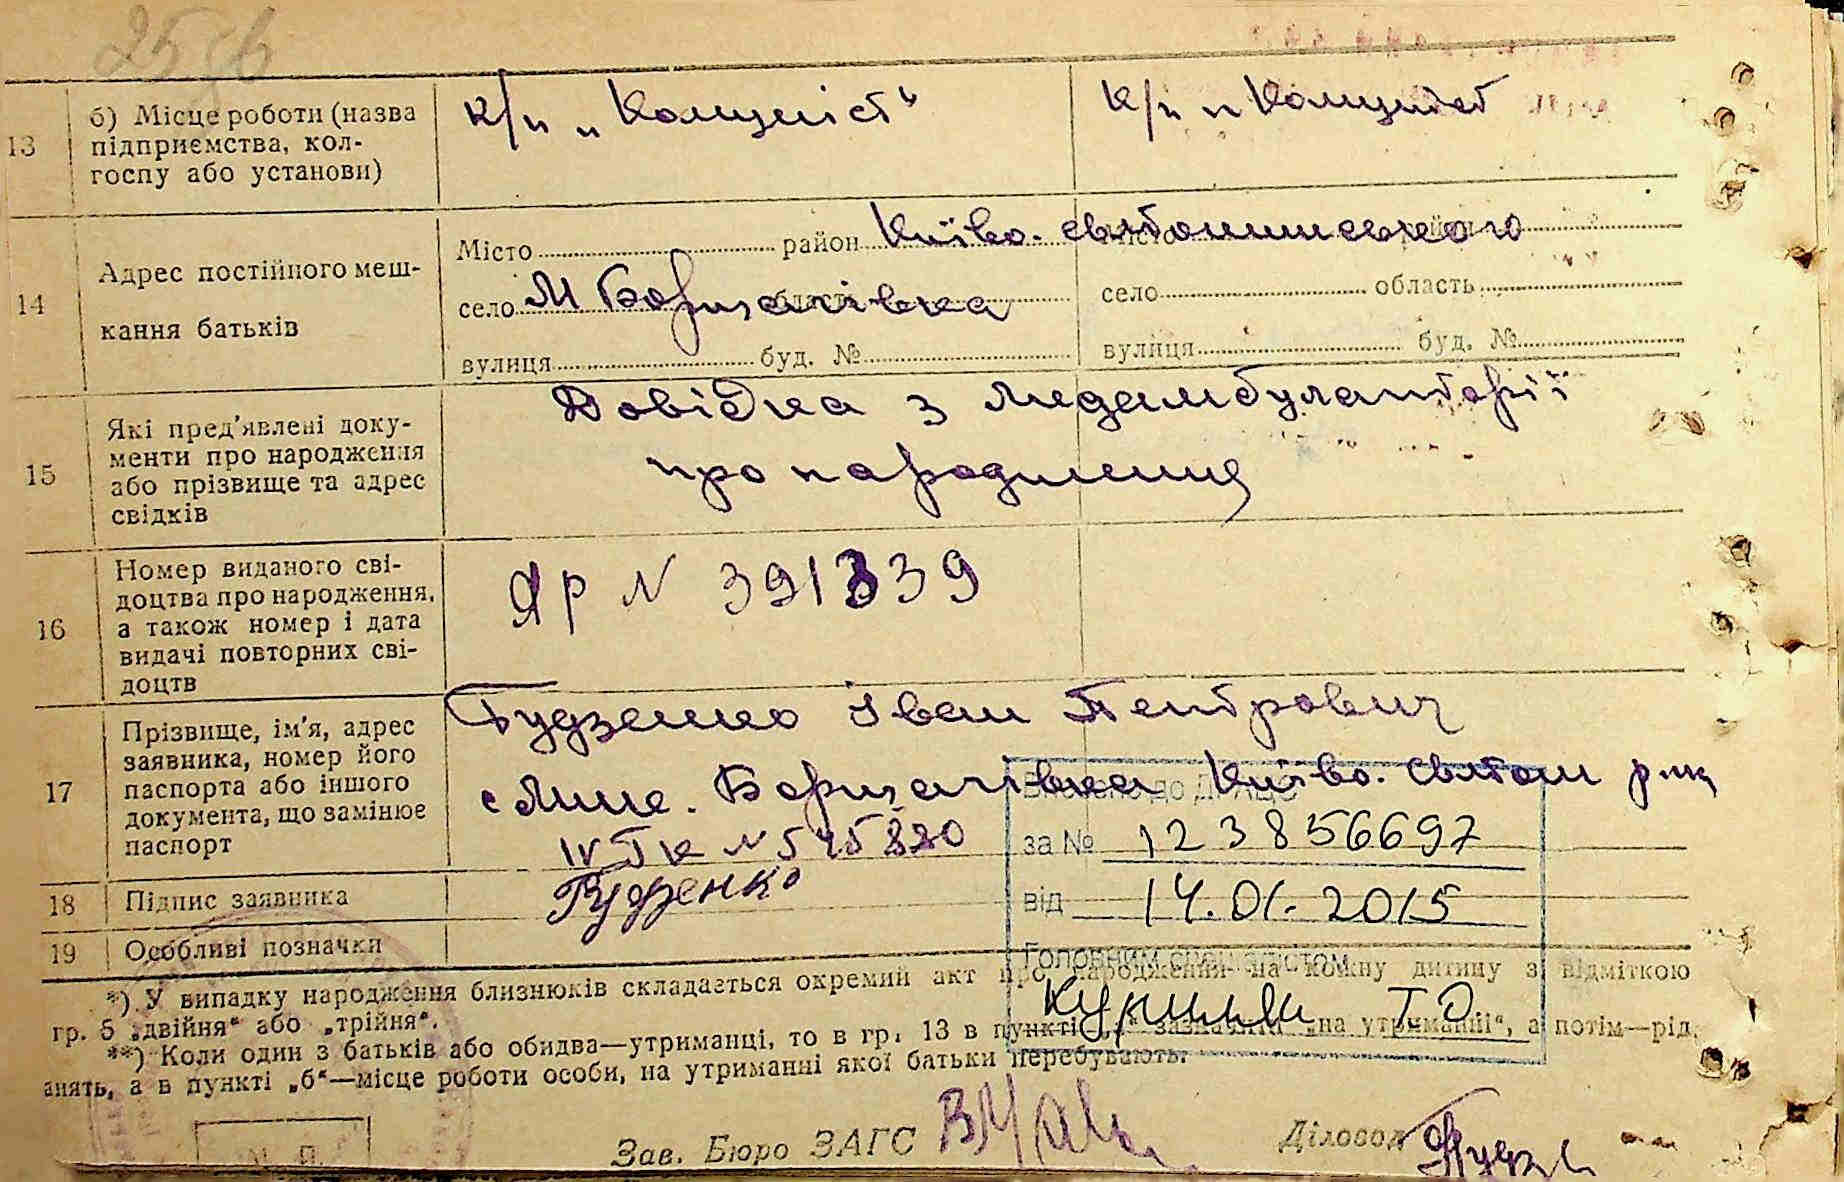 13
б) Місце роботи (назва
підприємства, кол-
госпу або установи)
к/п „Комуніст“
к/п „Комуніст
14
Адрес постійного меш-
кання батьків
Місто район Київо. святошинського
село М Борщагівка область
вулиця буд. №
місто район
село область
вулиця буд. №
15
Які пред'явлені доку-
менти про народження
або прізвище та адрес
свідків
Довідка з медамбулаторії
про народження
16
Номер виданого сві-
доцтва про народження,
а також номер і дата
видачі повторних сві-
доцтв
ЯР N 391339
17
Прізвище, ім'я, адрес
заявника, номер його
паспорта або іншого
документа, що замінює
паспорт
Гудзенко Іван Петрович
с Мик. Борщагівка Київо. Святош р-нк
N 545880
до ДРАЦС
за № 123856697
від 14.01.2015
Головним спеціалістом
Т О
18
Підпис заявника
Гудзенко
19
Особливі позначки
*) У випадку народження близнюків складається окремий акт про народження на кожну дитину з відміткою
гр. 5 „двійня“ або „трійня“.
**) Коли один з батьків або обидва—утриманці, то в гр. 13 в пункті зазначати „на утриманні“, а потім—рід
анять, а в пункті „б“—місце роботи особи, на утриманні якої батьки перебувають.
М. П.
Зав. Бюро ЗАГС
Діловод